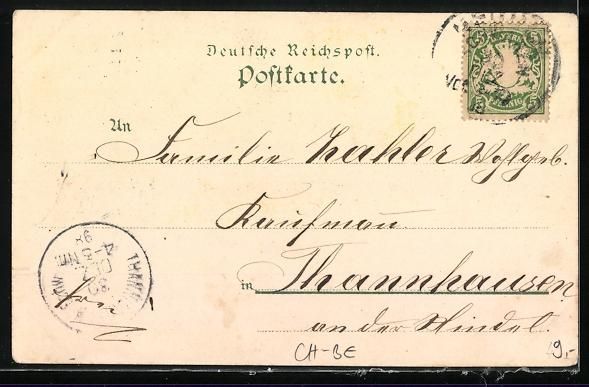 Deutsche Reichspost.
Postkarte.
An
Familie Zahler Wohlgeb.
Kaufmann
in Thannhausen
an der Mindel.
CH-BE
9,-